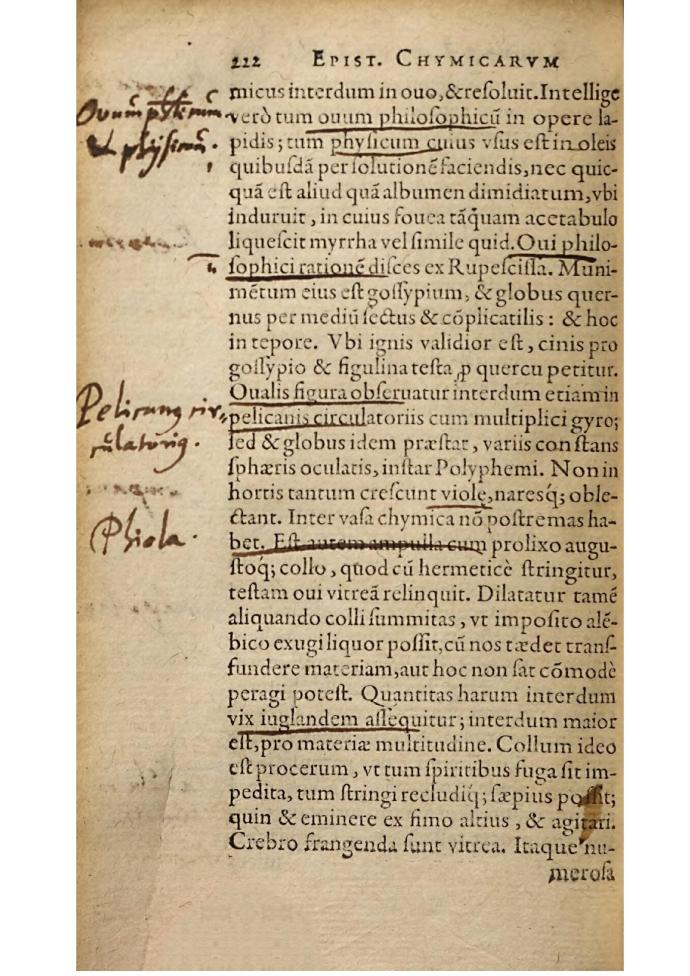 222 EPIST. CHYMICARVM
micus interdum in ouo, & resoluit. Intellige
verò tum ouum philosophicũ in opere la-
pidis; tum physicum cuius vsus est in oleis
quibusdã per solutionẽ faciendis, nec quic-
quã est aliud quã albumen dimidiatum, vbi
induruit, in cuius fouea tãquam acetabulo
liquescit myrrha vel simile quid. Oui philo-
sophici rationẽ disces ex Rupescissa. Muni-
mẽtum eius est gossypium, & globus quer-
nus per mediũ sectus & cõplicatilis: & hoc
in tepore. Vbi ignis validior est, cinis pro
gossypio & figulina testa ꝓ quercu petitur.
Qualis figura obseruatur interdum etiam in
pelicanis circulatoriis cum multiplici gyro;
sed & globus idem præstat, variis constans
sphæris oculatis, instar Polyphemi. Non in
hortis tantum crescunt violę, naresq́; oble-
ctant. Inter vasa chymica nõ postremas ha-
bet. Est autem ampulla cum prolixo augu-
stoq́; collo, quod cũ hermeticè stringitur,
testam oui vitreã relinquit. Dilatatur tamẽ
aliquando colli summitas, vt imposito alẽ-
bico exugi liquor possit, cũ nos tædet trans-
fundere materiam, aut hoc non sat cõmodè
peragi potest. Quantitas harum interdum
vix iuglandem assequitur; interdum maior
est, pro materiæ multitudine. Collum ideo
est procerum, vt tum spiritibus fuga sit im-
pedita, tum stringi recludiq́; sæpius possit;
quin & eminere ex fimo altius, & agitari.
Crebro frangenda sunt vitrea. Itaque nu-
merosa
Ovum
& physicum.
Pelicanus cir-
culatorius.
Phiola.